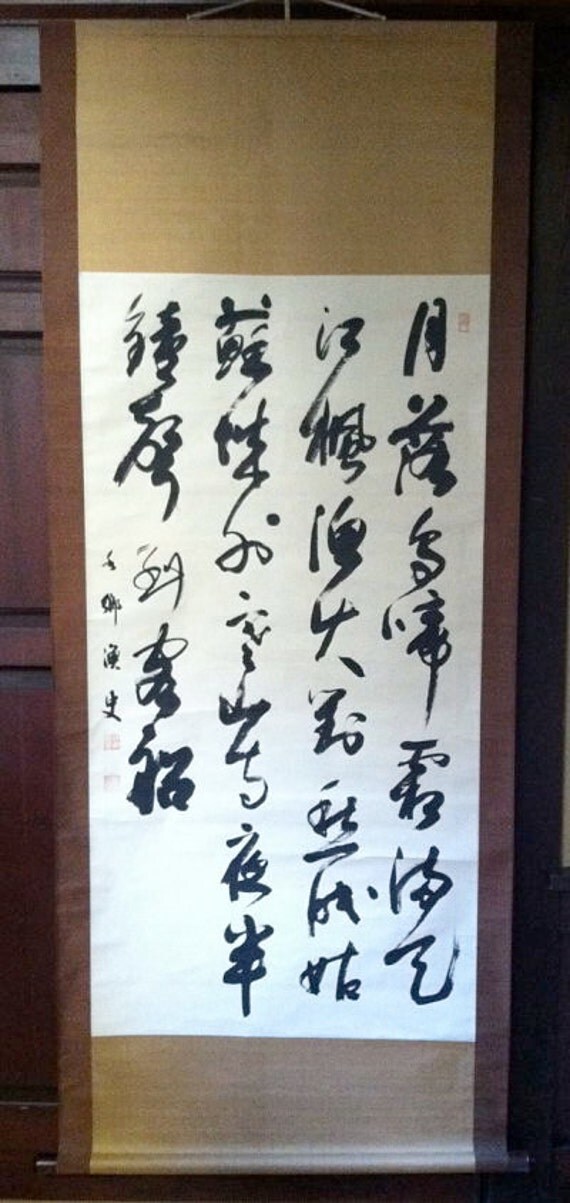 月落烏啼霜滿天
江楓漁火對愁眠姑
蘇城外寒山寺夜半
鐘聲到客船
郷漁史